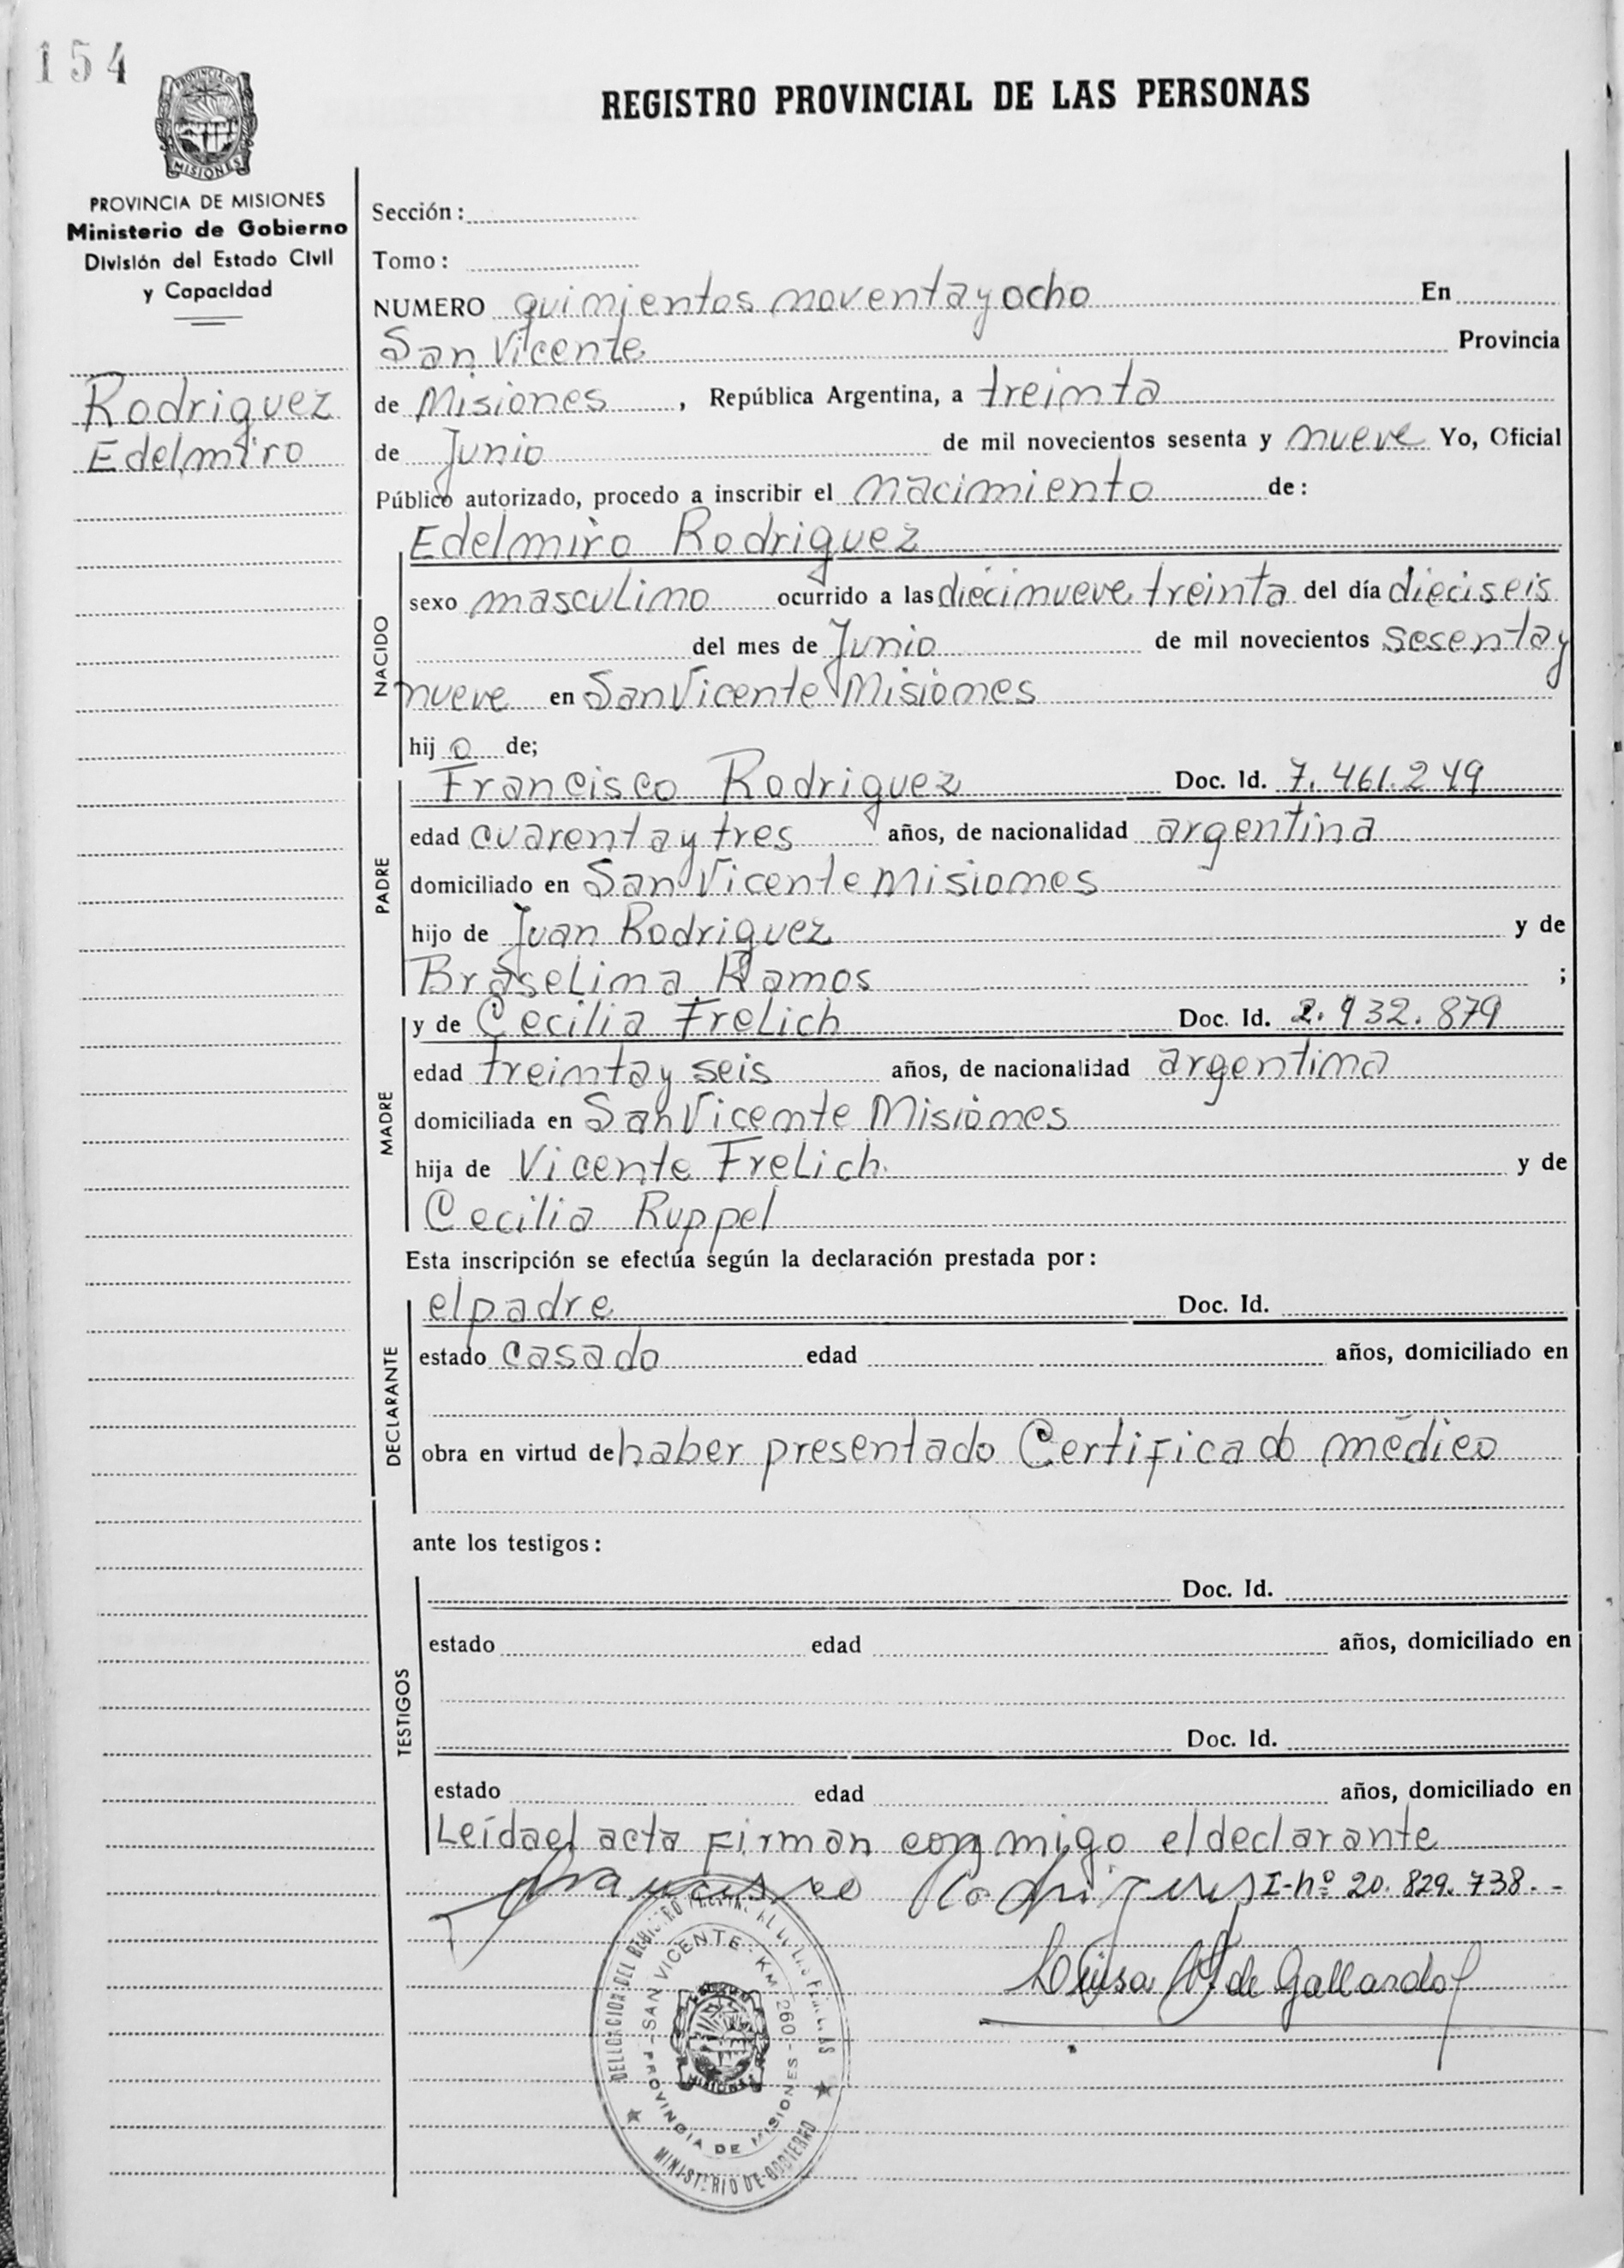 154
REGISTRO PROVINCIAL DE LAS PERSONAS
MISIONES
PROVINCIA DE MISIONES
Ministerio de Gobierno
División del Estado Civil
y Capacidad
Rodriguez
Edelmiro
Sección:
Tomo:
NUMERO quinientos noventa y ocho En
San Vicente Provincia
de Misiones, República Argentina, a treinta
de Junio de mil novecientos sesenta y nueve Yo, Oficial
Público autorizado, procedo a inscribir el nacimiento de:
NACIDO
Edelmiro Rodriguez
sexo masculino ocurrido a las diecinueve treinta del día dieciseis
del mes de Junio de mil novecientos sesenta y
nueve en San Vicente Misiones
hijo de;
PADRE
Francisco Rodriguez Doc. Id. 7.461.249
edad cuarenta y tres años, de nacionalidad argentina
domiciliado en San Vicente Misiones
hijo de Juan Rodriguez y de
Braselina Ramos ;
MADRE
y de Cecilia Frelich Doc. Id. 2.932.879
edad treinta y seis años, de nacionalidad argentina
domiciliada en San Vicente Misiones
hija de Vicente Frelich. y de
Cecilia Ruppel
Esta inscripción se efectúa según la declaración prestada por:
DECLARANTE
el padre Doc. Id.
estado casado edad años, domiciliado en
obra en virtud de haber presentado Certificado médico
ante los testigos:
TESTIGOS
Doc. Id.
estado edad años, domiciliado en
Doc. Id.
estado edad años, domiciliado en
Leída el acta firman conmigo el declarante
Francisco Rodrigues I-nº 20.829.738.-
Luisa de Gallardo
SAN VICENTE - KM 260 - PROVINCIA DE MISIONES
MINISTERIO DE GOBIERNO
MISIONES